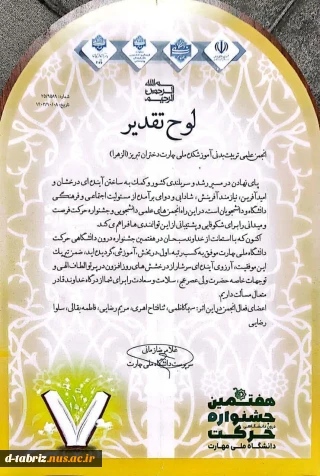 بسم الله الرحمن الرحیم
شماره:
تاریخ:
لوح تقدیر
انجمن علمی تربیت بدنی آموزشکده ملی مهارت دختران تبریز (الزهرا)
پای نهادن در مسیر رشد و سربلندی کشور و کمک به ساختن آینده‌ای درخشان و
امیدآفرین، نیازمند آفرینش، شادابی و دوای برآمدن از مسئولیت اجتماعی و فرهنگی
دانشگاه و دانشجویان است. در این راه انجمن‌های علمی دانشجویی و جشنواره حرکت فرصت
و میدانی را برای شکوفایی و پشتیبانی از این توانمندی‌ها فراهم می‌کند.
اکنون که با استعانت از خداوند سبحان در هفتمین جشنواره درون دانشگاهی حرکت
دانشگاه ملی مهارت موفق به کسب رتبه اول در بخش آموزشی گردیده‌اید، ضمن تبریک
این موفقیت، آرزوی آینده‌ای سرشار از درخشش‌های روزافزون در پرتو الطاف الهی و
توجهات خاصه حضرت ولی عصر (عج)، سلامت و سعادت را برای شما از درگاه خداوند قادر
متعال مسألت داریم.
اعضای فعال انجمن در این اثر: سها کاظمی، ثنا فتاح اهری، مریم رضایی، فاطمه بقائی، سلوا
رضایی
غلامرضا زمانی
سرپرست دانشگاه ملی مهارت
هفتمین
جشنواره
درون دانشگاهی
حرکت
دانشگاه ملی مهارت
d-tabriz.nus.ac.ir